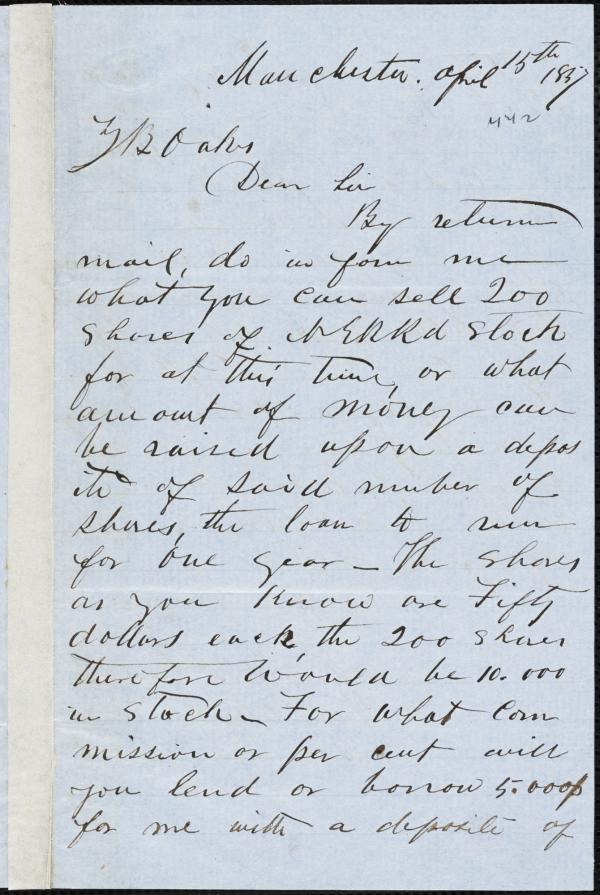 Manchester. April 15th 1857
442
Z B Oakes
Dear Sir
By return
mail, do in form me
what you can sell 200
Shares of NERRd Stock
for at this time, or what
amount of money can
be raised upon a depos
ite of said number of
shares, the loan to run
for one year – The shares
as you know are Fifty
dollars each, the 200 shares
therefore would be 10.000
in Stock – For what com
mission or per cent will
you lend or borrow 5.000$
for me with a deposite of